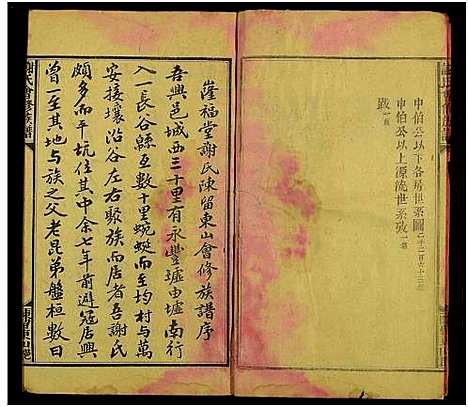 申伯公以下各房世系圖
申伯公以上源流世系攷
跋
隆福堂謝氏陳留東山會修族譜序
吾興邑城西三十里有永豐墟由墟南行
入一長谷縣互數十里蜿蜒而至均村與萬
安接壤沿谷左右聚族而居者吾謝氏
頗多而平坑住其中余七年前避寇居興
曾一至其地与族之父老昆弟盤桓數日
謝氏會修族譜